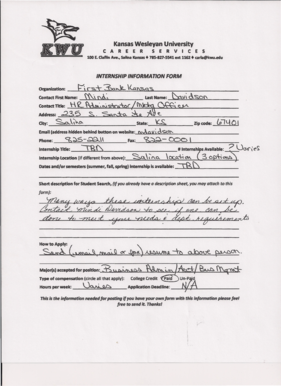 KWU
Kansas Wesleyan University
CAREER SERVICES
100 E. Claflin Ave., Salina Kansas • 785-827-5541 ext 1162 • carla@kwu.edu
INTERNSHIP INFORMATION FORM
Organization: First Bank Kansas
Contact First Name: Mindi Last Name: Davidson
Contact Title: HR Administrator/Mktg Officer
Address: 235 S. Santa Fe Ave
City: Salina State: KS Zip code: 67401
Email (address hidden behind button on website: mdavidson
Phone: 825-2211 Fax: 822-0001
Internship Title: TBD # Internships Available: ? Varies
Internship Location (if different from above): Salina location (3 options)
Dates and/or semesters (summer, fall, spring) Internship is available: TBD
Short description for Student Search, (If you already have a description sheet, you may attach to this
form):
Many ways these internships can be set up.
Contact Mindi Davidson to see if one can be
done to meet your needs & dept requirements
How to Apply:
Send (email, mail or fax) resume to above person.
Major(s) accepted for position: Business Admin/Acct/Bus Mgmt
Type of compensation (circle all that apply): College Credit Paid Un-Paid
Hours per week: Varies Application Deadline: N/A
This is the information needed for posting if you have your own form with this information please feel
free to send it. Thanks!